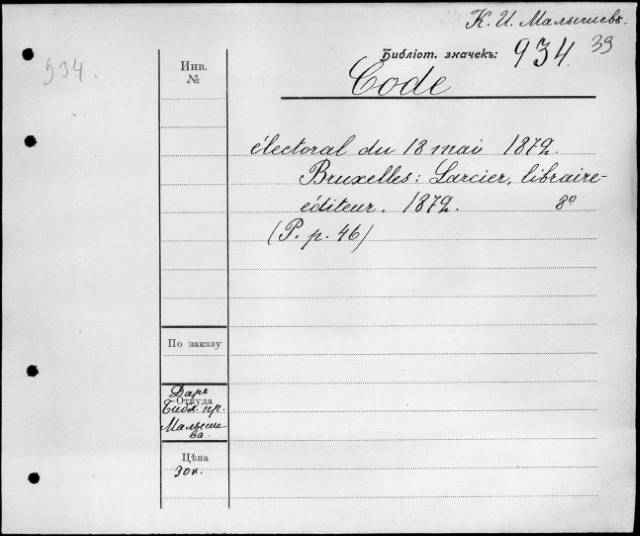 К. И. Малышевъ.
934.
Инв.
№
Библіот. значекъ: 934. 39
Code
électoral du 18 mai 1872.
Bruxelles: Larcier, libraire-
éditeur. 1872. 8º
(P. p. 46)
По заказу
Откуда
Даръ
Библ. пр.
Малыше-
ва.
Цѣна
30 к.